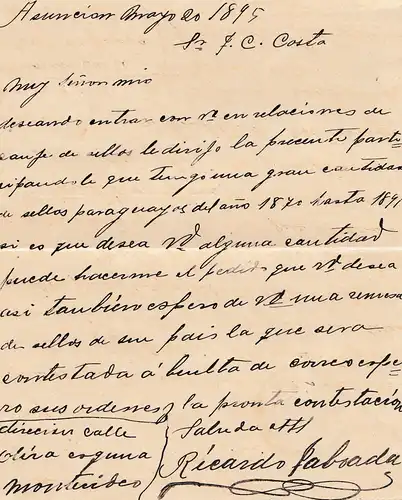 Asuncion Mayo 20 1895
Sr J. C. Costa
Muy Señor mio
deseando entrar con Vd en relaciones de
canje de sellos le dirijo la presente parti
cipandole que tengo una gran cantidad
de sellos paraguayos del año 1870 hasta 189
si es que desea Vd alguna cantidad
puede hacerme el pedido que Vd desea
asi tambien espero de Vd una remesa
de sellos de su pais la que sera
contestada á buelta de correo espe
ro sus ordenes y la pronta contestacion
direcion calle
Saluda
Montevideo
Ricardo Taboada